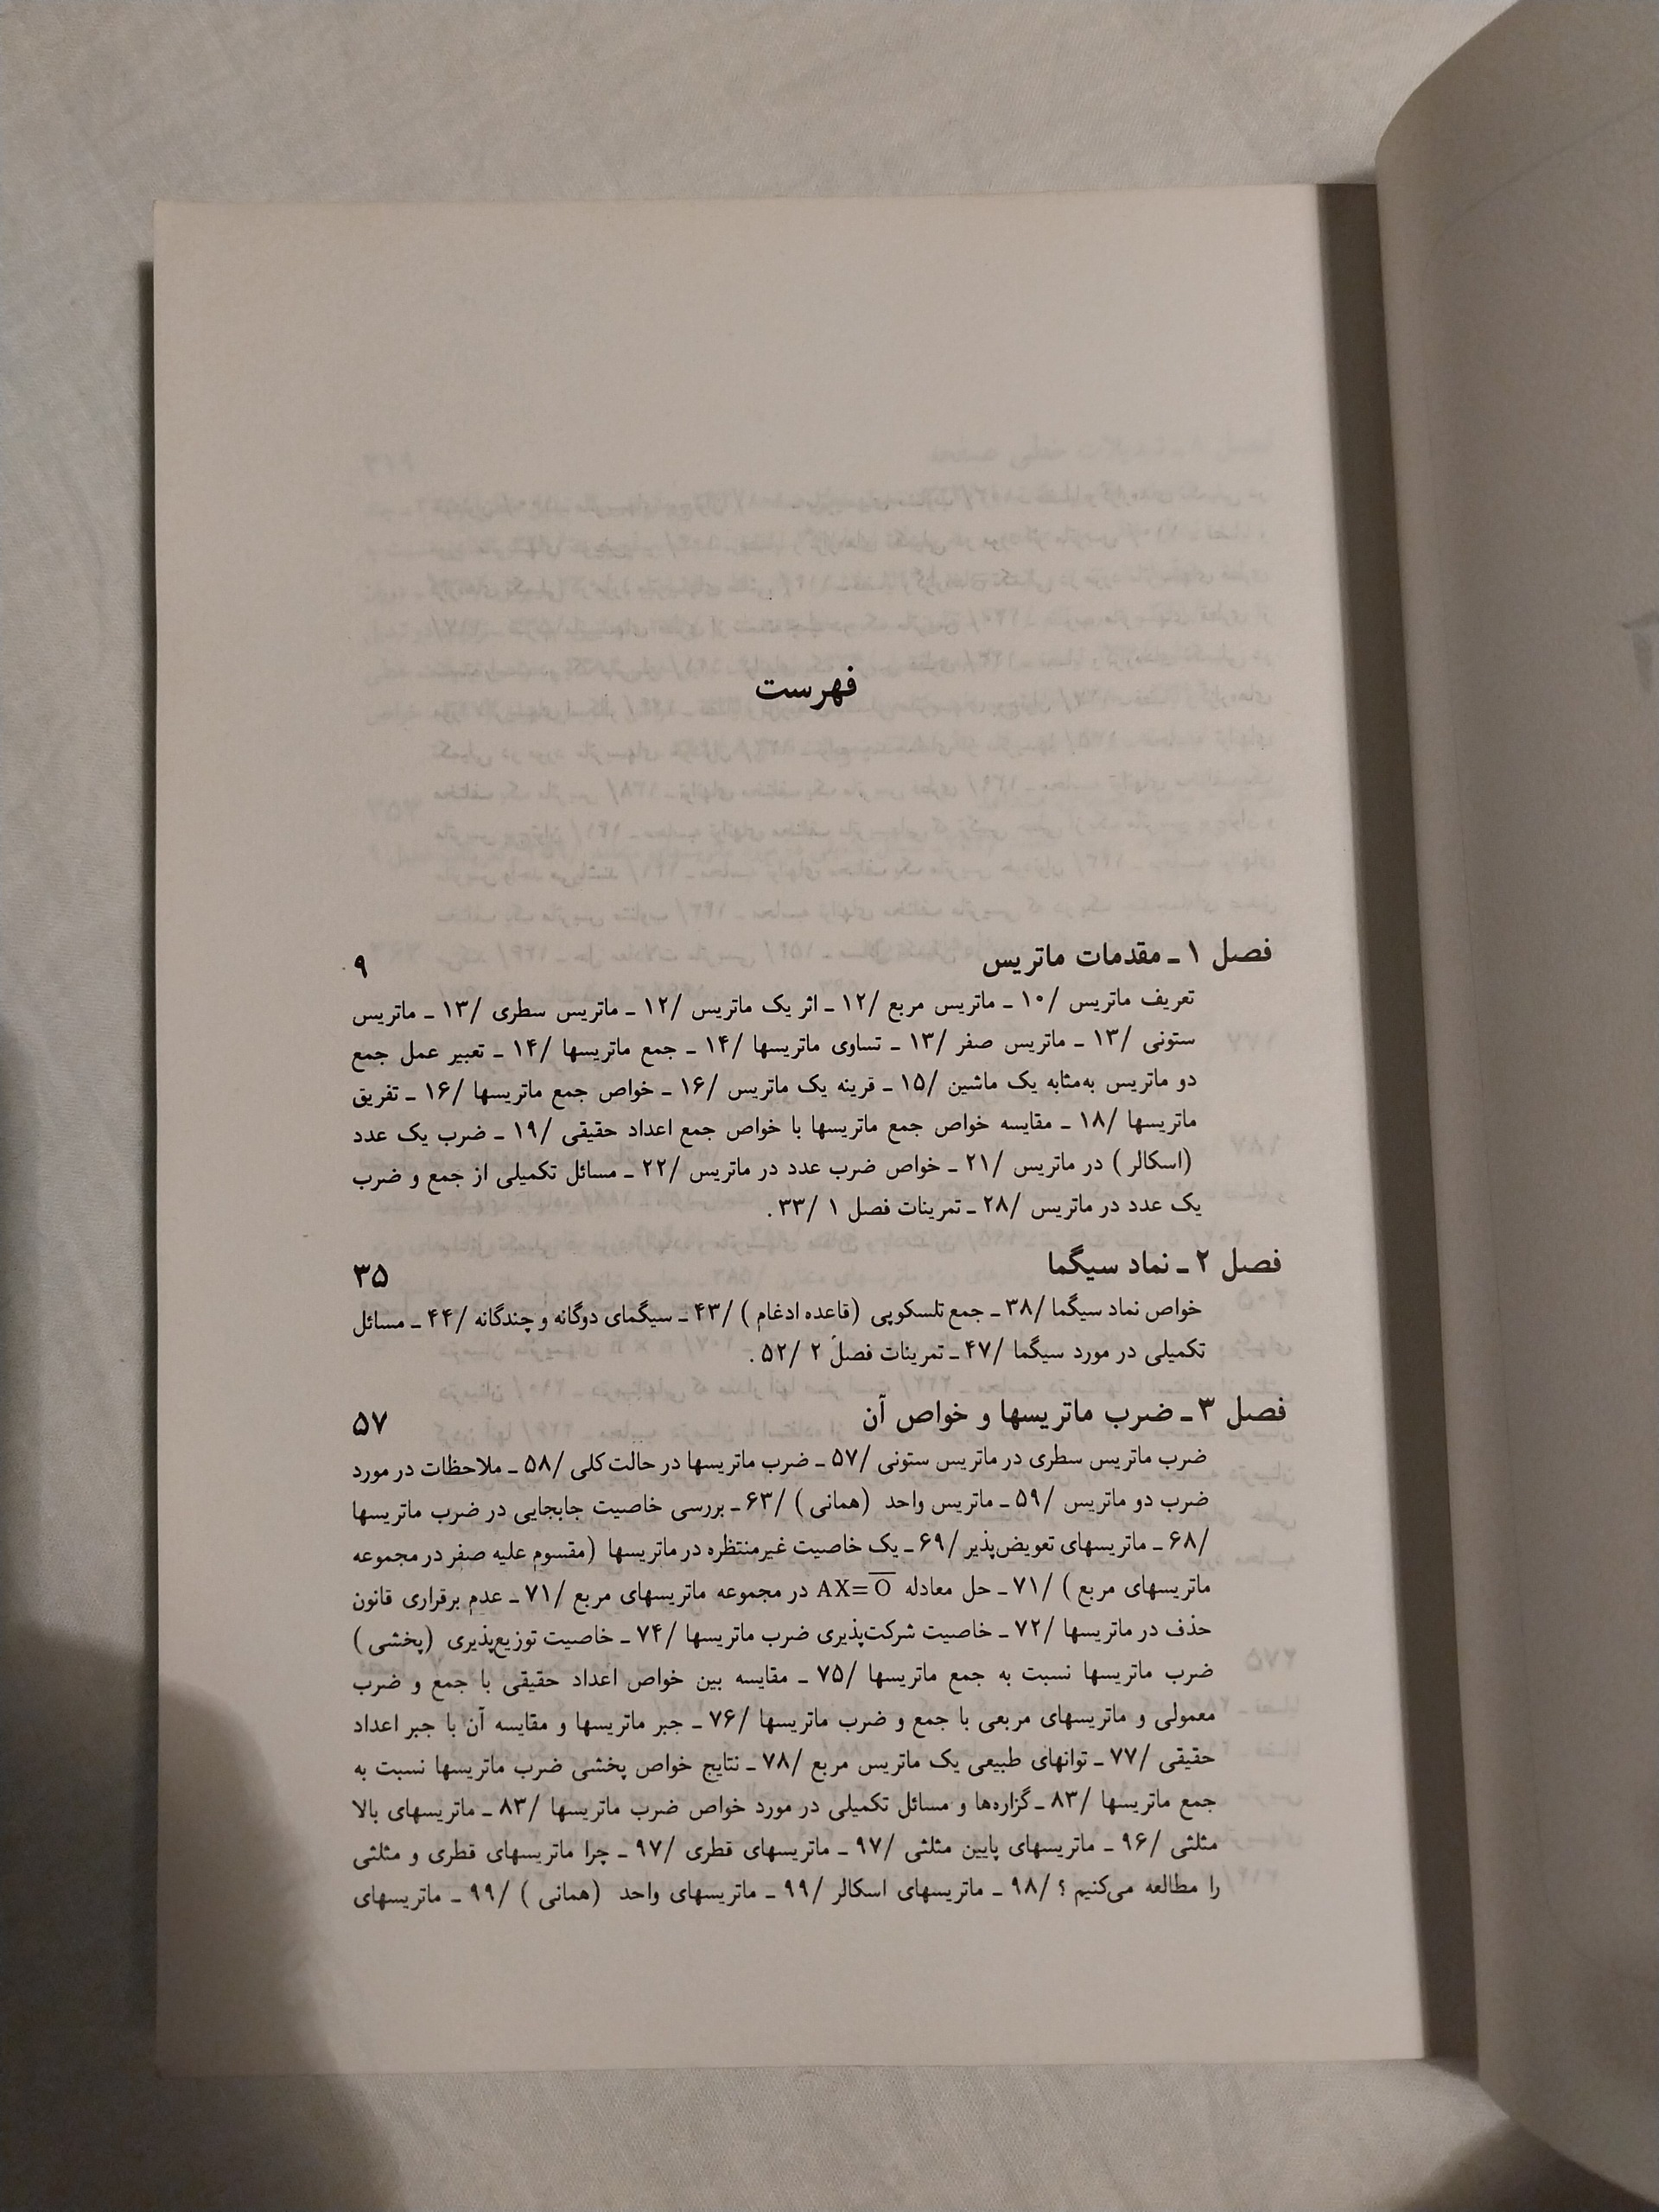 فهرست
فصل ۱ ـ مقدمات ماتریس ۹
تعریف ماتریس /۱۰ ـ ماتریس مربع /۱۲ ـ اثر یک ماتریس /۱۲ ـ ماتریس سطری /۱۳ ـ ماتریس
ستونی /۱۳ ـ ماتریس صفر /۱۳ ـ تساوی ماتریسها /۱۴ ـ جمع ماتریسها /۱۴ ـ تعبیر عمل جمع
دو ماتریس به‌مثابه یک ماشین /۱۵ ـ قرینه یک ماتریس /۱۶ ـ خواص جمع ماتریسها /۱۶ ـ تفریق
ماتریسها /۱۸ ـ مقایسه خواص جمع ماتریسها با خواص جمع اعداد حقیقی /۱۹ ـ ضرب یک عدد
(اسکالر) در ماتریس /۲۱ ـ خواص ضرب عدد در ماتریس /۲۲ ـ مسائل تکمیلی از جمع و ضرب
یک عدد در ماتریس /۲۸ ـ تمرینات فصل ۱ /۳۳.
فصل ۲ ـ نماد سیگما ۳۵
خواص نماد سیگما /۳۸ ـ جمع تلسکوپی (قاعده ادغام) /۴۳ ـ سیگمای دوگانه و چندگانه /۴۴ ـ مسائل
تکمیلی در مورد سیگما /۴۷ ـ تمرینات فصل ۲ /۵۲.
فصل ۳ ـ ضرب ماتریسها و خواص آن ۵۷
ضرب ماتریس سطری در ماتریس ستونی /۵۷ ـ ضرب ماتریسها در حالت کلی /۵۸ ـ ملاحظات در مورد
ضرب دو ماتریس /۵۹ ـ ماتریس واحد (همانی) /۶۳ ـ بررسی خاصیت جابجایی در ضرب ماتریسها
/۶۸ ـ ماتریسهای تعویض‌پذیر /۶۹ ـ یک خاصیت غیرمنتظره در ماتریسها (مقسوم علیه صفر در مجموعه
ماتریسهای مربع) /۷۱ ـ حل معادله AX=O̅ در مجموعه ماتریسهای مربع /۷۱ ـ عدم برقراری قانون
حذف در ماتریسها /۷۲ ـ خاصیت شرکت‌پذیری ضرب ماتریسها /۷۴ ـ خاصیت توزیع‌پذیری (پخشی)
ضرب ماتریسها نسبت به جمع ماتریسها /۷۵ ـ مقایسه بین خواص اعداد حقیقی با جمع و ضرب
معمولی و ماتریسهای مربعی با جمع و ضرب ماتریسها /۷۶ ـ جبر ماتریسها و مقایسه آن با جبر اعداد
حقیقی /۷۷ ـ توانهای طبیعی یک ماتریس مربع /۷۸ ـ نتایج خواص پخشی ضرب ماتریسها نسبت به
جمع ماتریسها /۸۳ ـ گزاره‌ها و مسائل تکمیلی در مورد خواص ضرب ماتریسها /۸۳ ـ ماتریسهای بالا
مثلثی /۹۶ ـ ماتریسهای پایین مثلثی /۹۷ ـ ماتریسهای قطری /۹۷ ـ چرا ماتریسهای قطری و مثلثی
را مطالعه می‌کنیم ؟ /۹۸ ـ ماتریسهای اسکالر /۹۹ ـ ماتریسهای واحد (همانی) /۹۹ ـ ماتریسهای